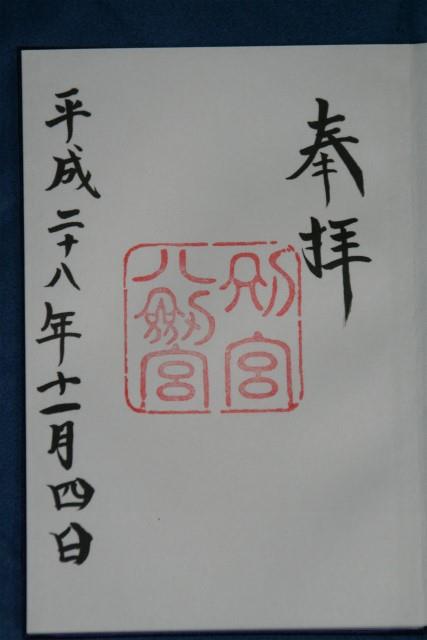 奉拝
別宮
八剱宮
平成二十八年十一月四日